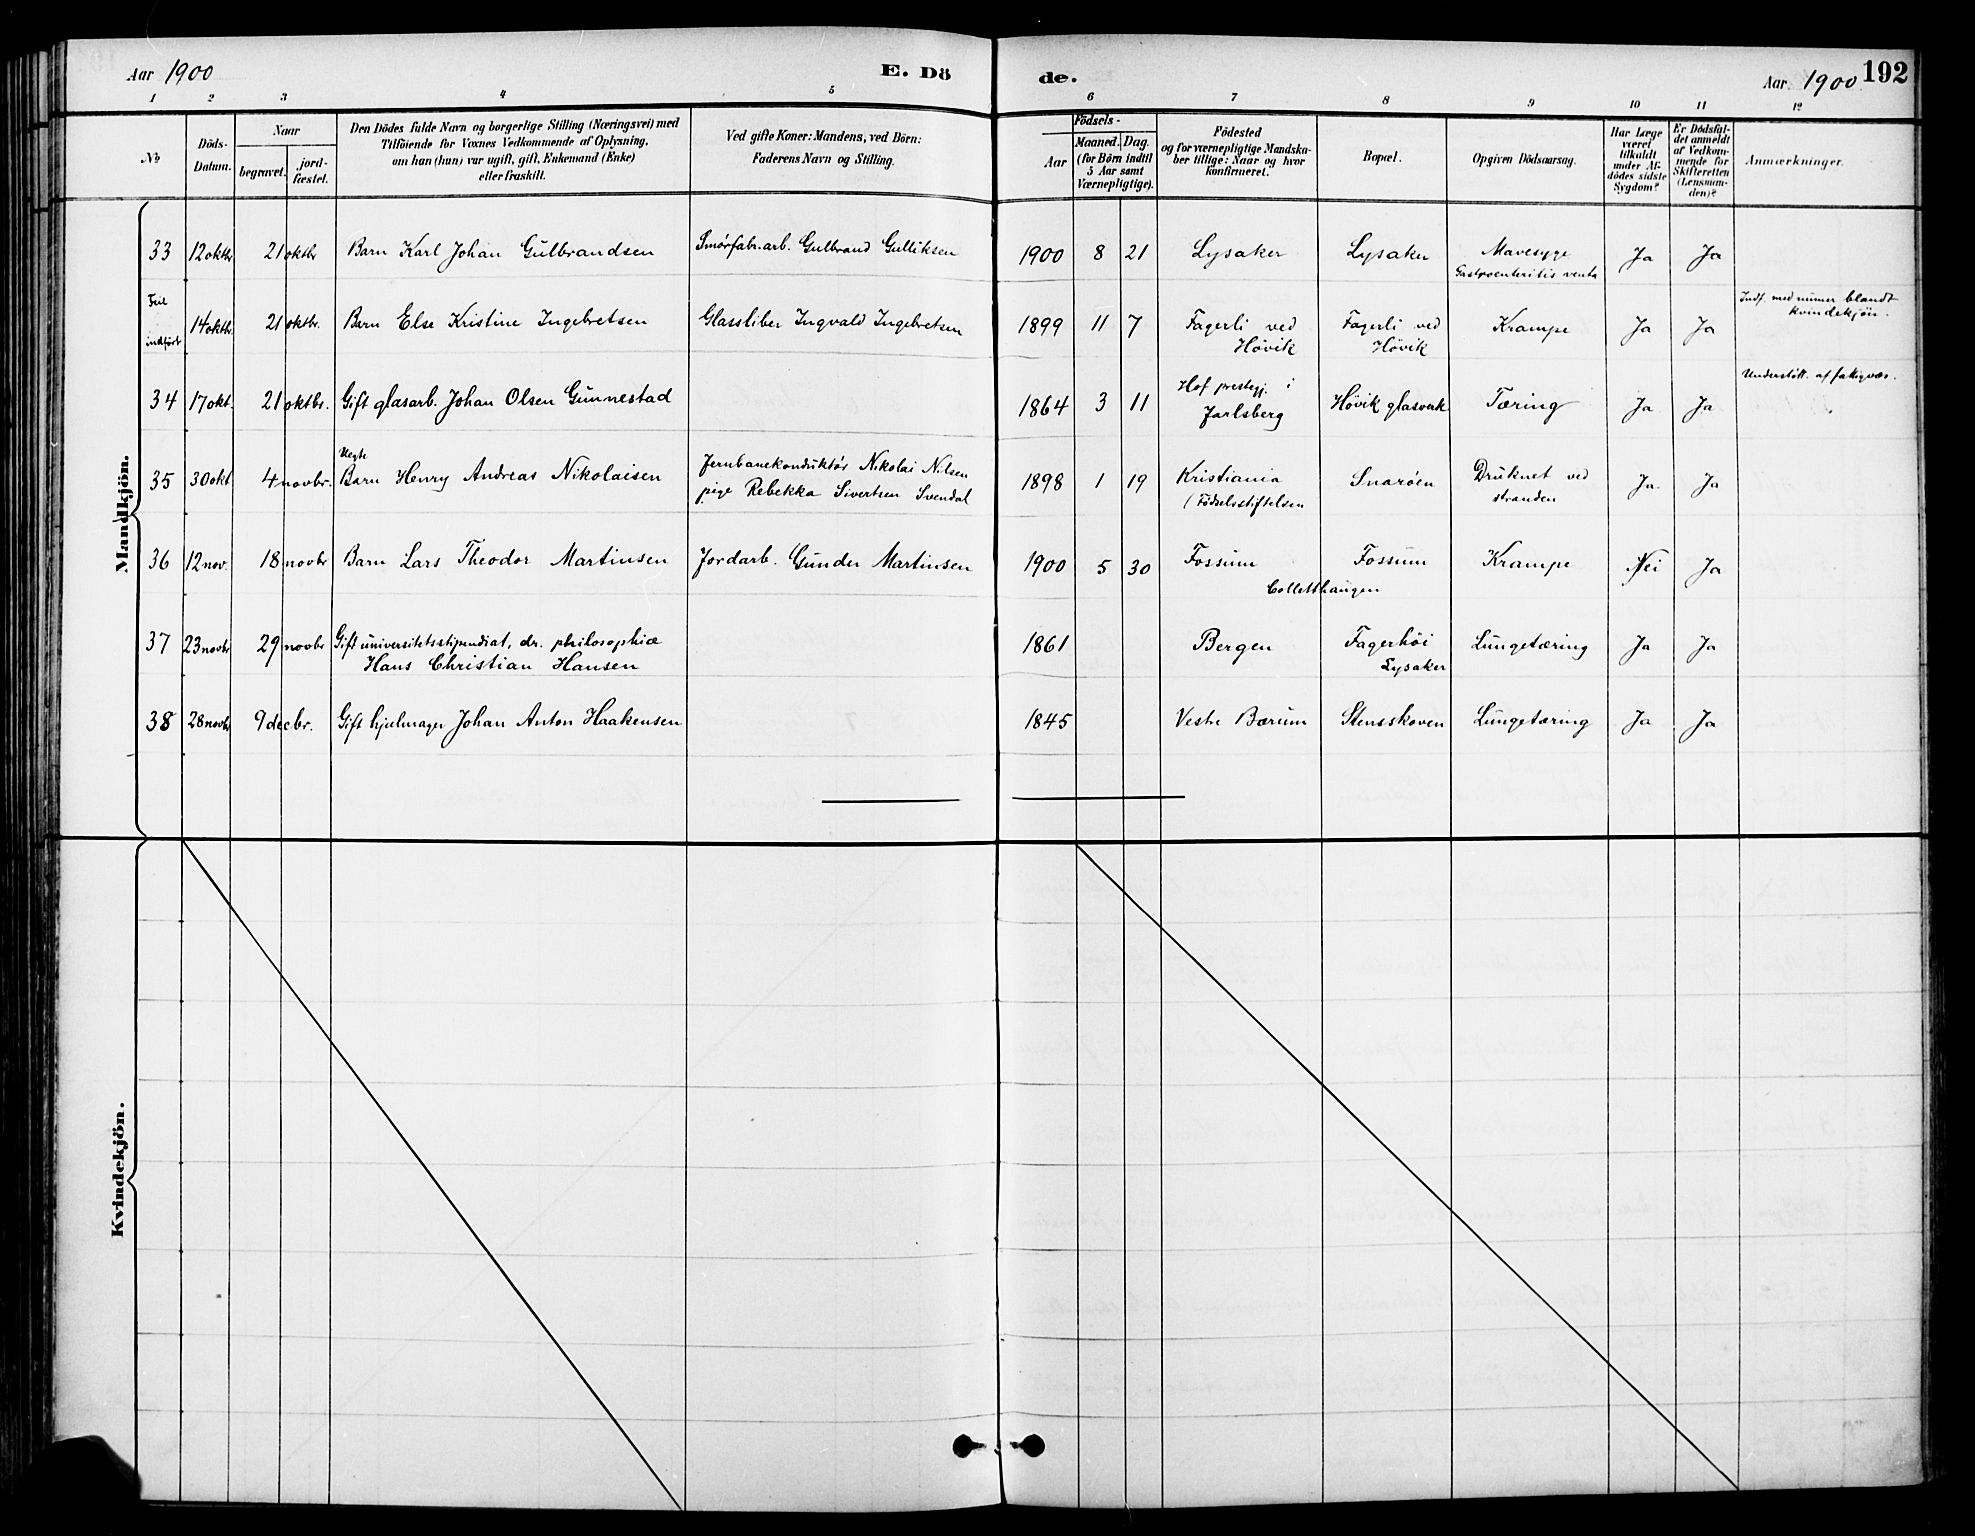 Aar 1900
E. Dö
de.
Aar 1900
192
1 2 3 4 5 6 7 8 9 10 11 12
No
Döds-
Datum.
Naar
begravet.
jord-
fæstet.
Den Dödes fulde Navn og borgerlige Stilling (Næringsvei) med
Tilföiende for Voxnes Vedkommende af Oplysning,
om han (hun) var ugift, gift, Enkemand (Enke)
eller fraskilt.
Ved gifte Koner: Mandens, ved Börn:
Faderens Navn og Stilling.
Födsels-
Aar
Maaned.
Dag.
(for Börn indtil
5 Aar samt
Værnepligtige).
Födested
og for værnepligtige Mandska-
ber tillige: Naar og hvor
konfirmeret.
Bopæl.
Opgiven Dödsaarsag.
Har Læge
været
tilkaldt
under Af-
dödes sidste
Sygdom?
Er Dödsfal-
det anmeldt
af Vedkom-
mende for
Skifteretten
(Lensman-
den)?
Anmærkninger.
Mandkjön.
33 12 oktbr 21 oktbr Barn Karl Johan Gulbrandsen Smörfabr.arb. Gulbrand Gulliksen 1900 8 21 Lysaker Lysaker Mavesyge Ja Ja
Gastroenteritis
Feil
indført 14 oktbr. 21 oktbr. Barn Else Kristine Ingebretsen Glassliber Ingvald Ingebretsen 1899 11 7 Fagerli ved Fagerli ved Krampe Ja Ja Indf. med numer blandt
Hövik Hövik kvindekjön.
34 17 okt. 21 oktbr. Gift glasarb. Johan Olsen Gunnestad 1864 3 11 Hof prestegj. i Hövik glasverk Tæring Ja Ja Understött. af fattigvæs.
Jarlsberg
Uegte
35 30 okt 4 novbr. Barn Henry Andreas Nikolaisen Jernbanekonduktör Nikolai Nilsen 1898 1 19 Kristiania Snaröen Druknet ved Ja Ja
pige Rebekka Sivertsen Svendal (Födselsstiftelsen stranden
36 12 nov. 18 novbr Barn Lars Theodor Martinsen Jordarb. Gunder Martinsen 1900 5 30 Fossum Fossum Krampe Nei Ja
Colletthaugen
37 23 novbr 29 novbr Gift universitetsstipendiat, dr. philosophiæ 1861 Bergen Fagerhöi Lungetæring Ja Ja
Hans Christian Hansen Lysaker
38 28 novbr 9 decbr. Gift hjulmager Johan Anton Haakensen 1845 Vestre Bærum Stensskoven Lungetæring Ja Ja
Kvindekjön.